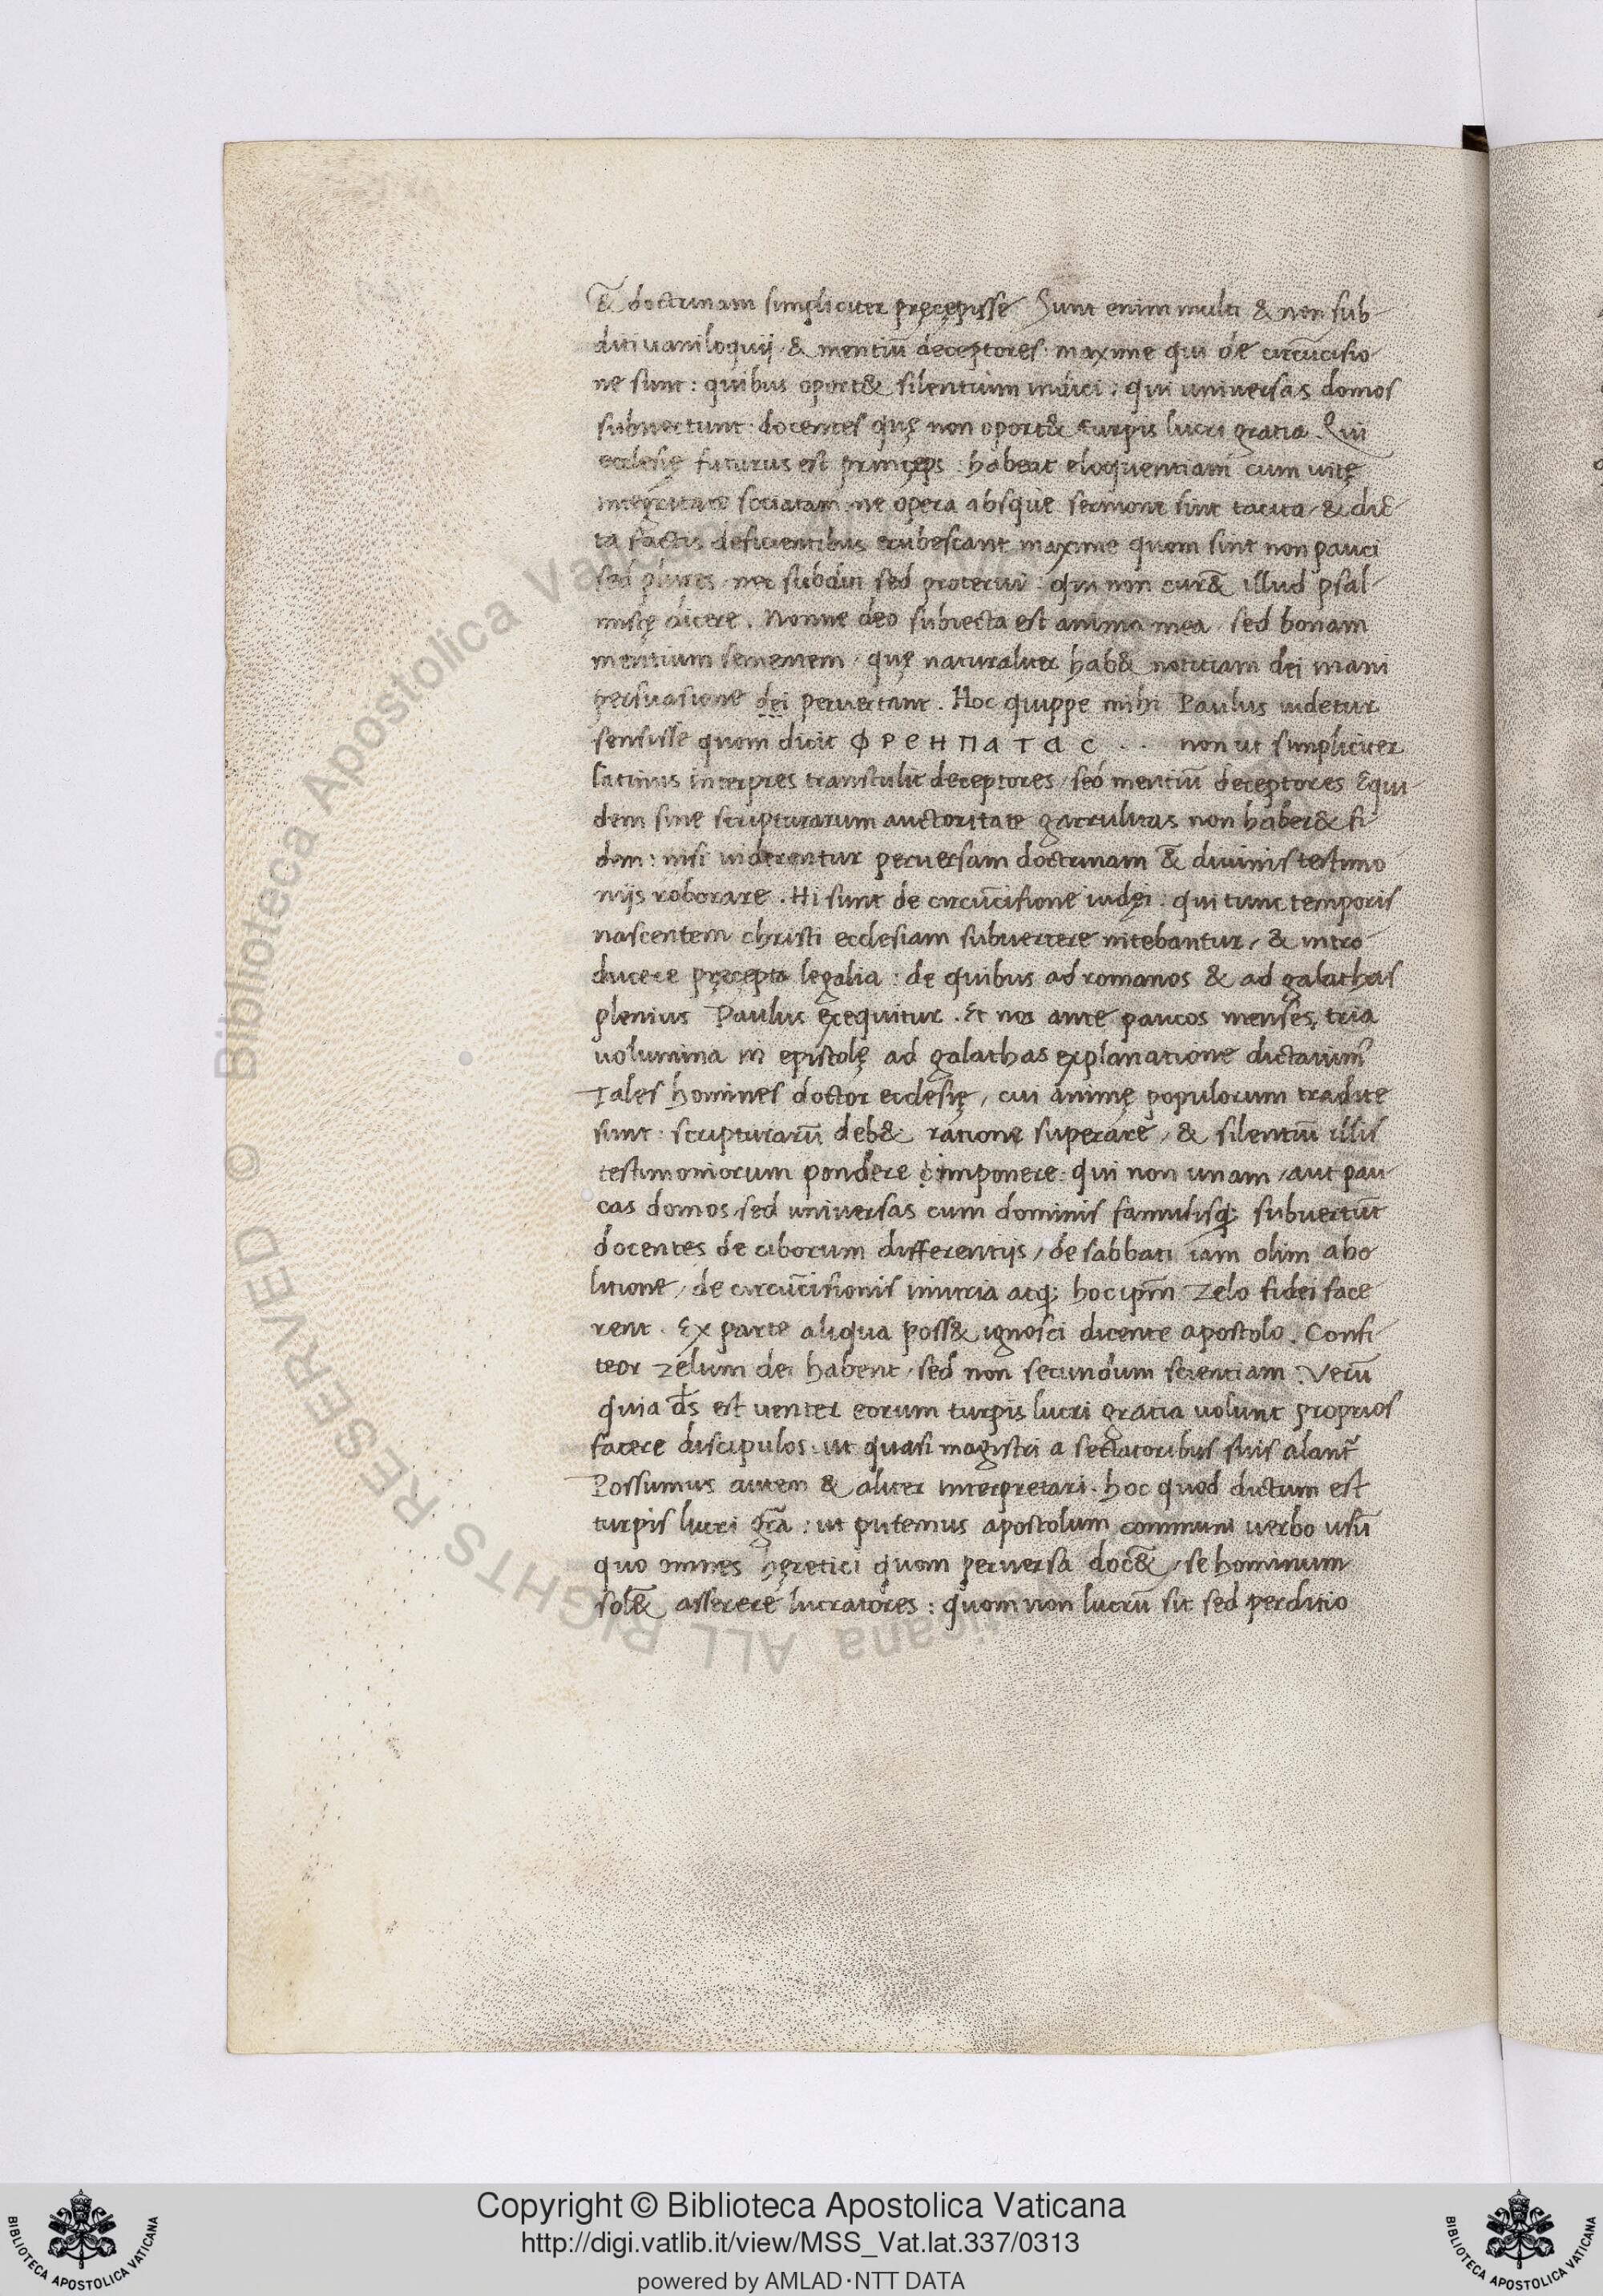 & doctrinam simpliciter pręcępisse. Sunt enim multi & non sub-
diti uaniloquij & mentiū deceptores. maxime qui de circūcisio
ne sunt: quibus oport& silentium indici: qui uniuersas domos
subuertunt: docentes quę non oport& turpis lucri gratia. Qui
ecclesię futurus est princeps: habeat eloquentiam cum uitę
integritate sociatam. ne opera absque sermone sint tacita / & dic-
ta factis deficientibus erubescant maxime quom sint non pauci
sed plures / nec subditi sed proterui: qui non cur& illud psal-
mistę dicere. Nonne deo subiecta est anima mea / sed bonam
mentium sementem / quę naturaliter hab& notitiam dei inani
persuasione dei peruertant. Hoc quippe mihi Paulus uidetur
sensisse quom dicit ΦΡΕΗΠΑΤΑC . . non ut simpliciter
latinus interpres transtulit deceptores / sed mentiū deceptores Equi
dem sine scripturarum auctoritate garrulitas non haber& fi
dem: nisi uiderentur peruersam doctrinam & diuinis testimo
nijs roborare. Hi sunt de circūcisione iudęi: qui tunc temporis
nascentem christi ecclesiam subuertere nitebantur, & intro
ducere pręcepta legalia: de quibus ad romanos & ad galathas
plenius Paulus exequitur. Et nos ante paucos menses, tria
uolumina in epistolę ad galathas explanatione dictauim'
Tales homines doctor ecclesię, cui animę populorum tradite
sunt. scripturarū deb& ratione superare, & silentiū illis
testimoniorum pondere imponere: qui non unam / aut pau
cas domos, sed uniuersas cum dominis famulisq; subuertūt
docentes de ciborum differentijs / de sabbati iam olim abo
litione / de circūcisionis iniuria atq; hoc ipm̄ zelo fidei face
rent. Ex parte aliqua poss& ignosci dicente apostolo. Confi
teor zelum dei habent / sed non secundum scientiam. Verū
quia d̄s est uenter eorum turpis lucri gratia uolunt proprios
facere discipulos: ut quasi magistri a sectatoribus suis alant̄
Possumus autem & aliter interpretari. hoc quod dictum est
turpis lucri grā: ut putemus apostolum communi uerbo usū
quo omnes hęretici quom peruersa doc& / se hominum
sol& asserere lucratores: quom non lucrū sit sed perditio
© Biblioteca Apostolica Vaticana ALL RIGHTS RESERVED
Copyright © Biblioteca Apostolica Vaticana
http://digi.vatlib.it/view/MSS_Vat.lat.337/0313
powered by AMLAD·NTT DATA
BIBLIOTECA APOSTOLICA VATICANA
BIBLIOTECA APOSTOLICA VATICANA